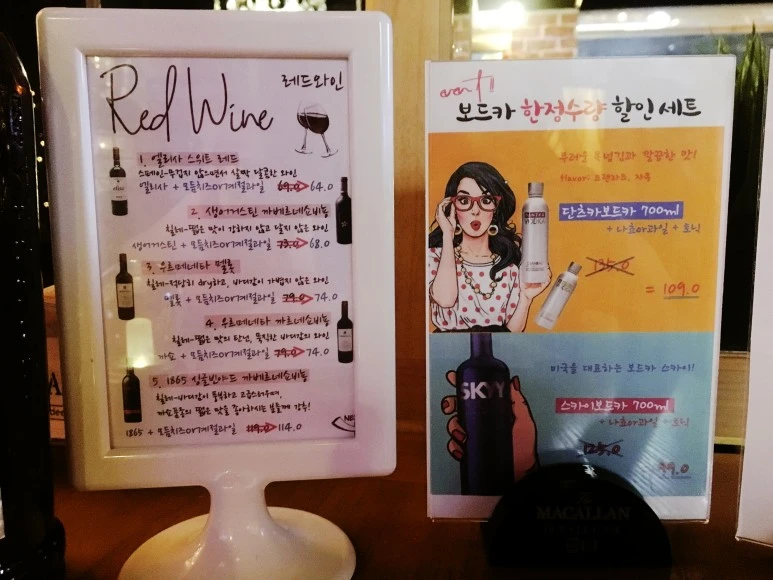 Red Wine 레드와인
1. 엘리사 스위트 레드
스페인-무겁지 않으면서 살짝 달콤한 와인
엘리사 + 모듬치즈or계절과일 69.0 → 64.0
2. 생어거스틴 까베르네소비뇽
칠레-떫은 맛이 강하지 않고 달지 않은 와인
생어거스틴 + 모듬치즈or계절과일 73.0 → 68.0
3. 우르메네타 멜롯
칠레-적당히 dry하고, 바디감이 가볍지 않은 와인
멜롯 + 모듬치즈or계절과일 79.0 → 74.0
4. 우르메네타 까르네소비뇽
칠레-떫은 맛의 탄닌, 묵직한 바디감의 와인
까쇼 + 모듬치즈or계절과일 79.0 → 74.0
5. 1865 싱글빈야드 까베르네소비뇽
칠레-바디감이 풍부하고 고급스러우며,
까쇼품종의 떫은 맛을 좋아하시는 분들께 강추!
1865 + 모듬치즈or계절과일 119.0 → 114.0
event!
보드카 한정수량 할인 세트
부러운 목넘김과 깔끔한 맛!
단츠카보드카 700ml
+ 나쵸or과일 + 토닉
135.0
= 109.0
SKYY
미국을 대표하는 보드카 스카이!
스카이보드카 700ml
+ 나쵸or과일 + 토닉
125.0
99.0
MACALLAN